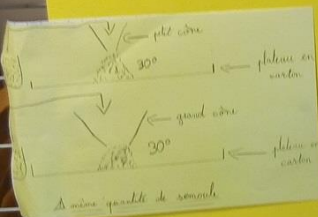 petit cône
30°
plateau en
carton
grand cône
30°
plateau en
carton
même quantité de semoule